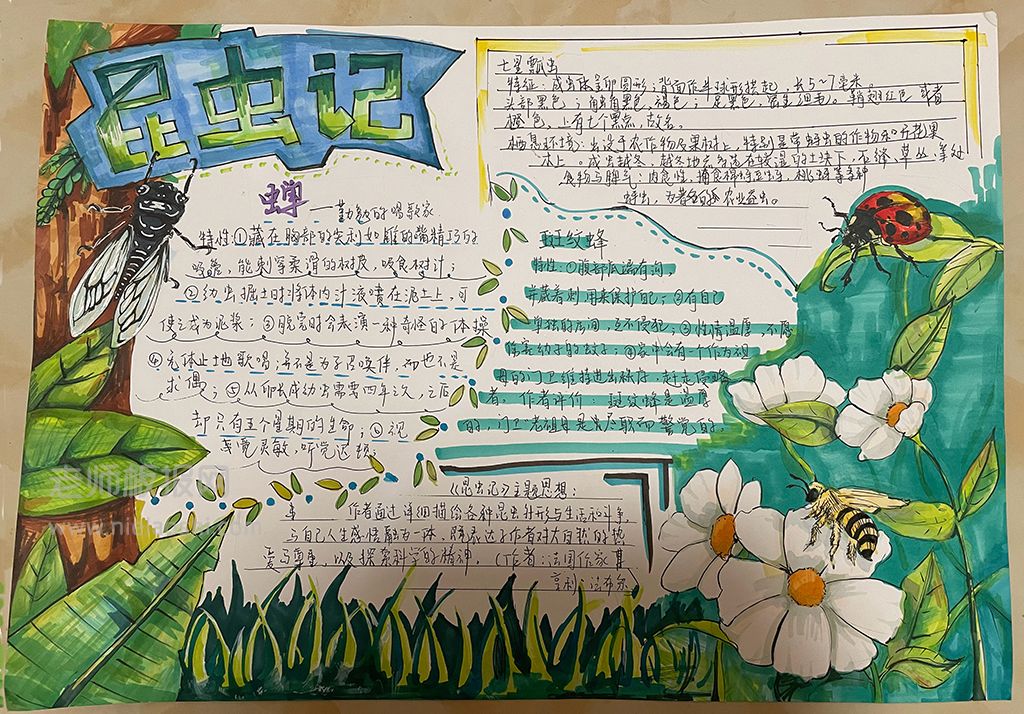 昆虫记
七星瓢虫
特征：成虫体呈卵圆形；背面作半球形拱起，长5~7毫米。
头部黑色；触角黑色，褐色；足黑色，密生细毛。鞘翅红色或者
橙色，上有七个黑点，故名。
栖息环境：出没于农作物及果树上，特别是常
上。成虫越冬，越冬地点
食物与脾气：肉食性，捕食
农业益虫。
蝉——勤线的唱歌家
特性：①藏在胸部的尖利如锥的嘴精巧的
吸管，能刺穿柔滑的树皮，吸食树汁；
②幼虫掘土时将体内汁液喷在泥土上，可
使之成为泥浆；③脱壳时会表演一种奇怪的体操
④无休止地歌唱；并不是为了召唤伴，而也不是
求偶；⑤从卵长成幼虫需要四年之久，之后
却只有五个星期的生命；⑥视
觉灵敏，听觉迟钝。
斑纹蜂
特性：①腹部底遍有沟，
并藏着刺用来保护自己；②有自己
单独的房间，互不侵犯；③性情温厚，不愿
伤害幼子的蚊子；④家中会有一个作为祖
母的门卫维持进出秩序，赶走侵略
者。作者评价：斑纹蜂是温厚
的，门卫“老祖母是尽忠职而警觉的。
《昆虫记》主题思想：
作者通过详细描绘各种昆虫外形与生活和斗争，
与自己人生感悟融为一体，既表达了作者对大自然的热
爱与尊重，以及探索科学的精神。（作者：法国作家
亨利·法布尔
老师板报网